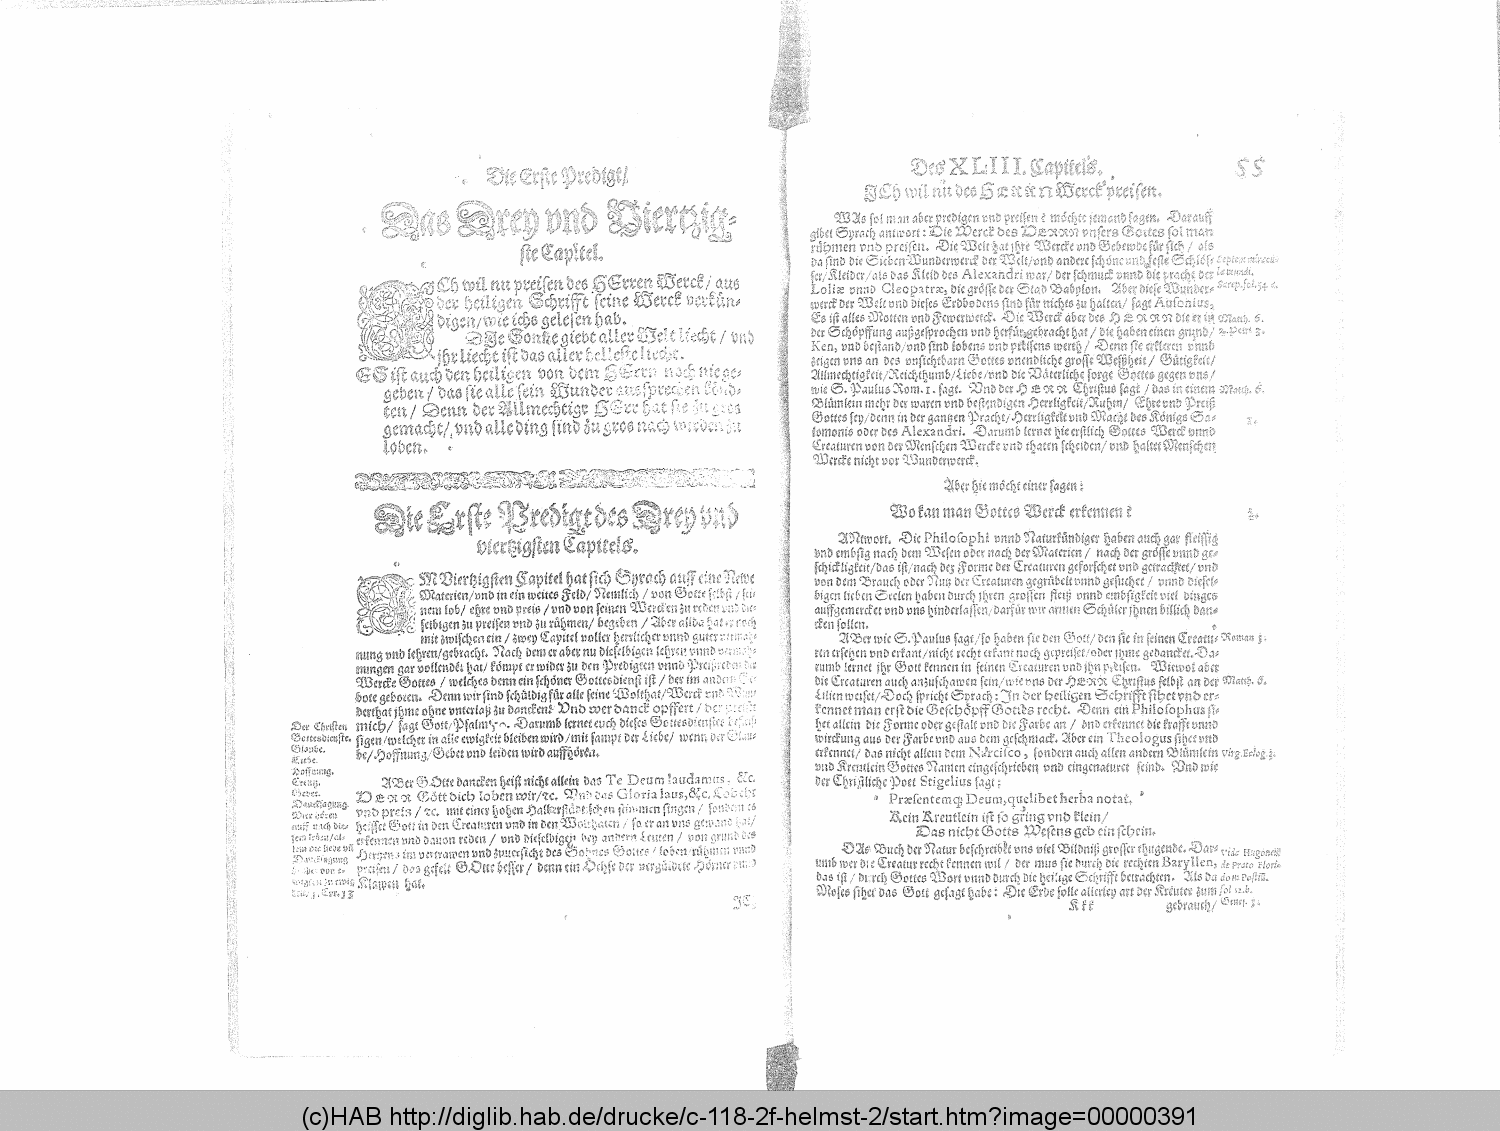 Die Erste Predigt/
Das Drey vnd Viertzig-
ste Capitel.
ICh wil nu preisen des HErren Werck/ aus
der heiligen Schrifft seine Werck verkün-
digen/ wie ichs gelesen hab.
DIe Sonne giebt aller Welt liecht/ vnd
ihr liecht ist das aller helleste liecht.
ES ist auch den heiligen von dem HErrn noch nie ge-
geben/ das sie alle sein Wunder aussprechen könd-
ten/ Denn der Allmechtige HErr hat sie zu gros
gemacht/ vnd alle ding sind zu gros nach wirden zu
loben.
Die Erste Predigt des Drey vnd
viertzigsten Capitels.
IM Viertzigsten Capitel hat sich Syrach auff eine Newe
Materien/ vnd in ein weites Feld/ Nemlich/ von Gotte selbst/
nem lob/ ehre vnd preis/ vnd von seinen Wercken zu reden vnd die-
selbigen zu preisen vnd zu rühmen/ begeben/ Aber allda hat er noch
mit zwischen ein/ zwey Capitel voller herrlicher vnnd guter
nung vnd lehren/ gebracht. Nach dem er aber nu dieselbigen lehren vnnd
nungen gar vollendet hat/ kömpt er wider zu den Predigten vnnd Preiß der
Wercke Gottes/ welches denn ein schöner Gottesdienst ist/ der im andern
bote geboten. Denn wir sind schüldig für alle seine Wolthat/ Werck vnd
derthat jhme ohne vnterlaß zu dancken. Vnd wer danck opffert/ der
mich/ sagt Gott/ Psalm Darumb lernet euch dieses Gottesdienstes
sigen/ welcher in alle ewigkeit bleiben wird/ mit sampt der Liebe/ wenn der Glau-
be/ Hoffnung/ Gebet vnd leiden wird auffhören.
Der Christen
Gottesdienste.
Glaube.
Liebe.
Hoffnung.
Creutz.
Gebet.
Dancksagung.
ABer GOtte dancken heist nicht allein das Te Deum laudamus, &c.
HERR Gott dich loben wir/ rc. Vnd das Gloria laus, &c.
vnd preis/ rc. mit einer hohen Halberstädtischen stimmen singen/ sondern es
heisset Gott in den Creaturen vnd in den Wolthaten/ so er an vns gewand hat/
erkennen vnd dauon reden/ vnd dieselbigen bey andern Leuten/ von grund des
Hertzen im vertrawen vnd zuuersicht des Sohnes Gottes/ loben rühmen vnnd
preisen/ das gefelt GOtte besser/ denn ein Ochse der vergüldete Hörner vnd
Klawen hat.
Des XLIII. Capitels. 55
ICh wil nu des HERRN Werck preisen.
WAs sol man aber predigen vnd preisen? möchte jemand sagen. Darauff
gibet Syrach antwort: Die Werck des HERRN vnsers Gottes sol man
rühmen vnd preisen. Die Welt hat jhre Wercke vnd Gebewde für sich/ als
da sind die Sieben Wunderwerck der Welt/ vnd andere schöne vnd feste Schlös-
ser/ Kleider/ als das Kleid des Alexandri war/ der schmuck vnnd die pracht der
Lolliæ vnnd Cleopatræ, die grösse der Stad Babylon. Aber diese Wunder-
werck der Welt vnd dieses Erdbodens sind für nichts zu halten/ sagt Ausonius,
Es ist alles Motten vnd Fewerwerck. Die Werck aber des HERRN die er in
der Schöpffung außgesprochen vnd herfür gebracht hat/ die haben einen grund/
Ken, vnd bestand/ vnd sind lobens vnd preisens werth/ Denn sie erkleren vnnd
zeigen vns an des vnsichtbarn Gottes vnendliche grosse Weißheit/ Gütigkeit/
Allmechtigkeit/ Reichthumb/ Liebe/ vnd die Väterliche sorge Gottes gegen vns/
wie S. Paulus Rom. 1. sagt. Vnd der HERR Christus sagt/ das in einem
Blümlein mehr der waren vnd bestendigen Herrligkeit/ Ruhm/ Ehre vnd Preiß
Gottes sey/ denn in der gantzen Pracht/ Herrligkeit vnd Macht des Königs Sa-
lomonis oder des Alexandri. Darumb lernet hie erstlich Gottes Werck vnnd
Creaturen von der Menschen Wercke vnd thaten scheiden/ vnd haltet Menschen
Wercke nicht vor Wunderwerck.
Matth. 6.
2. Petr. 3.
Matth. 6.
Aber hie möcht einer sagen:
Wo kan man Gottes Werck erkennen?
2.
ANtwort. Die Philosophi vnnd Naturkündiger haben auch gar fleissig
vnd embsig nach dem Wesen oder nach der Materien/ nach der grösse vnnd ge-
schickligkeit/ das ist/ nach der Forme der Creaturen geforschet vnd getrachtet/ vnd
von dem Brauch oder Nutz der Creaturen gegrübelt vnnd gesuchet/ vnnd diesel-
bigen lieben Seelen haben durch jhren grossen fleiß vnnd embsigkeit viel dinges
auffgemercket vnd vns hinderlassen/ darfür wir armen Schüler jhnen billich dan-
cken sollen.
ABer wie S. Paulus sagt/ so haben sie den Gott/ den sie in seinen Creatu-
ren ersehen vnd erkant/ nicht recht erkant noch gepreiset/ oder jhme gedancket. Da-
rumb lernet jhr Gott kennen in seinen Creaturen vnd jhn preisen. Wiewol aber
die Creaturen auch anzuschawen sein/ wie vns der HERR Christus selbst an der
Lilien weiset/ Doch spricht Syrach: In der heiligen Schrifft sihet vnd er-
kennet man erst die Geschöpff Gottes recht. Denn ein Philosophus si-
het allein die Forme oder gestalt vnd die Farbe an/ vnd erkennet die krafft vnnd
wirckung aus der Farbe vnd aus dem geschmack. Aber ein Theologus sihet vnd
erkennet/ das nicht allein dem Narcisso, sondern auch allen andern Blümlein
vnd Kreutlein Gottes Namen eingeschrieben vnd eingenaturet seind. Vnd wie
der Christliche Poet Stigelius sagt:
Roman 1.
Matth. 6.
Virg. Eclog. 3.
Præsentemq; Deum, quælibet herba notat,
Kein Kreutlein ist so gring vnd klein/
Das nicht Gotts Wesens geb ein schein.
DAs Buch der Natur beschreibt vns viel Bildniß grosser thugende. Dar-
umb wer die Creatur recht kennen wil/ der mus sie durch die rechten Baryllen,
das ist/ durch Gottes Wort vnnd durch die heilige Schrifft betrachten. Als da
Moses sihet das Gott gesagt habe: Die Erde solle allerley art der Kreuter zum
Kkk gebrauch/
Genes. 1.
(c)HAB http://diglib.hab.de/drucke/c-118-2f-helmst-2/start.htm?image=00000391